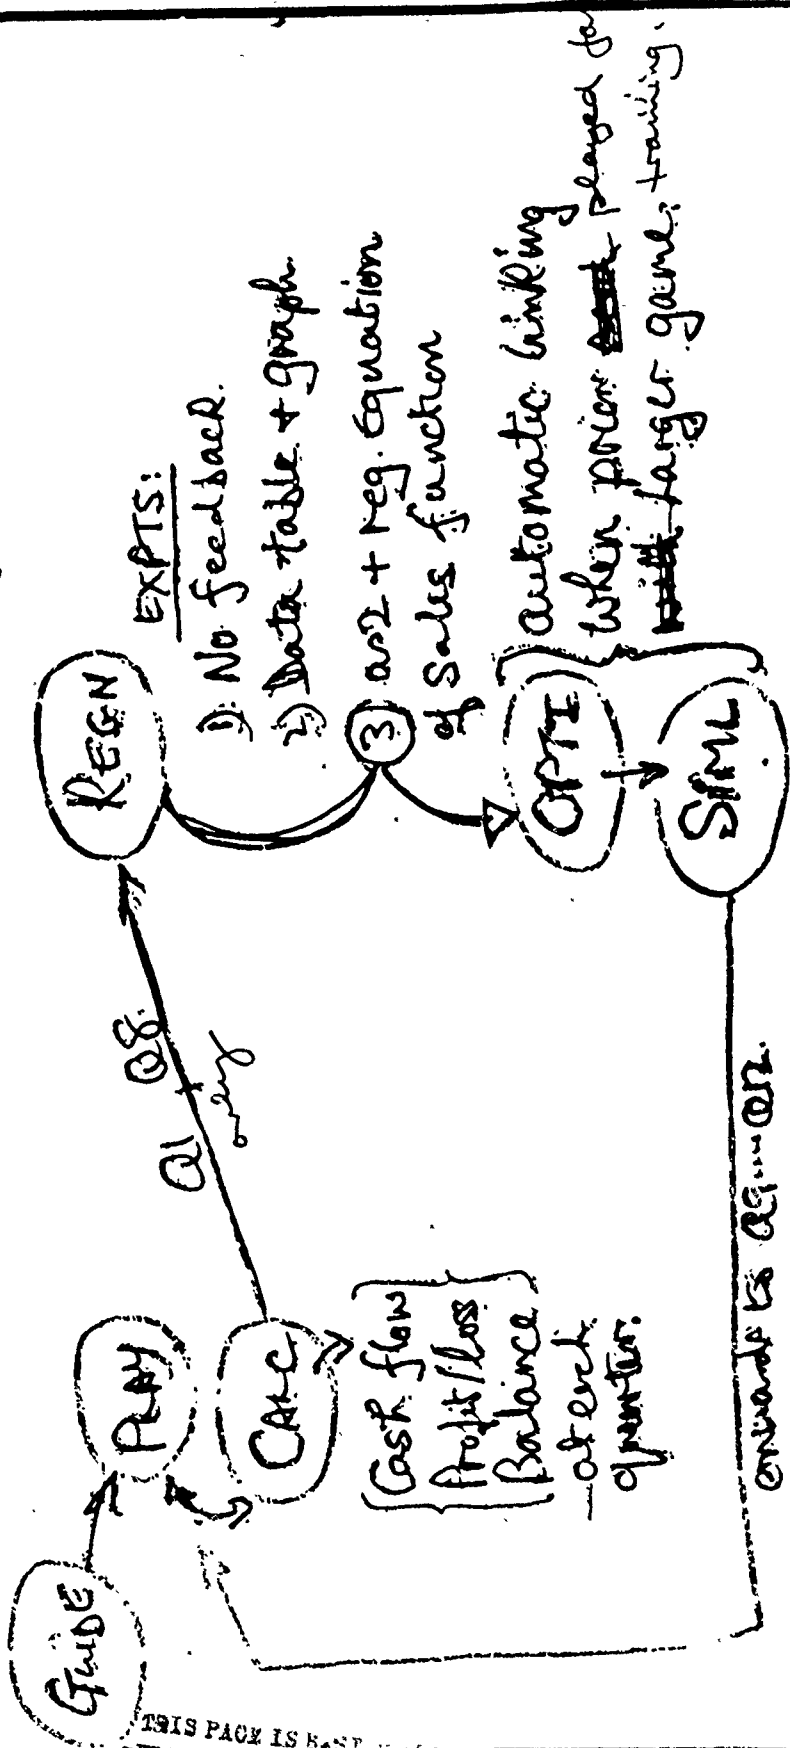 GUIDE
PLAY
CALC
Cash flow
Profit/Loss
Balance
at each
quarter.
Q1 Q8.
only
REGN
EXPTS:
1) No feedback.
2) Data table + graph.
3) as 2 + reg. Equation
of Sales function
OPTI
SIML
automatic linking
when prior played
larger game, training.
THIS PAGE IS BEST